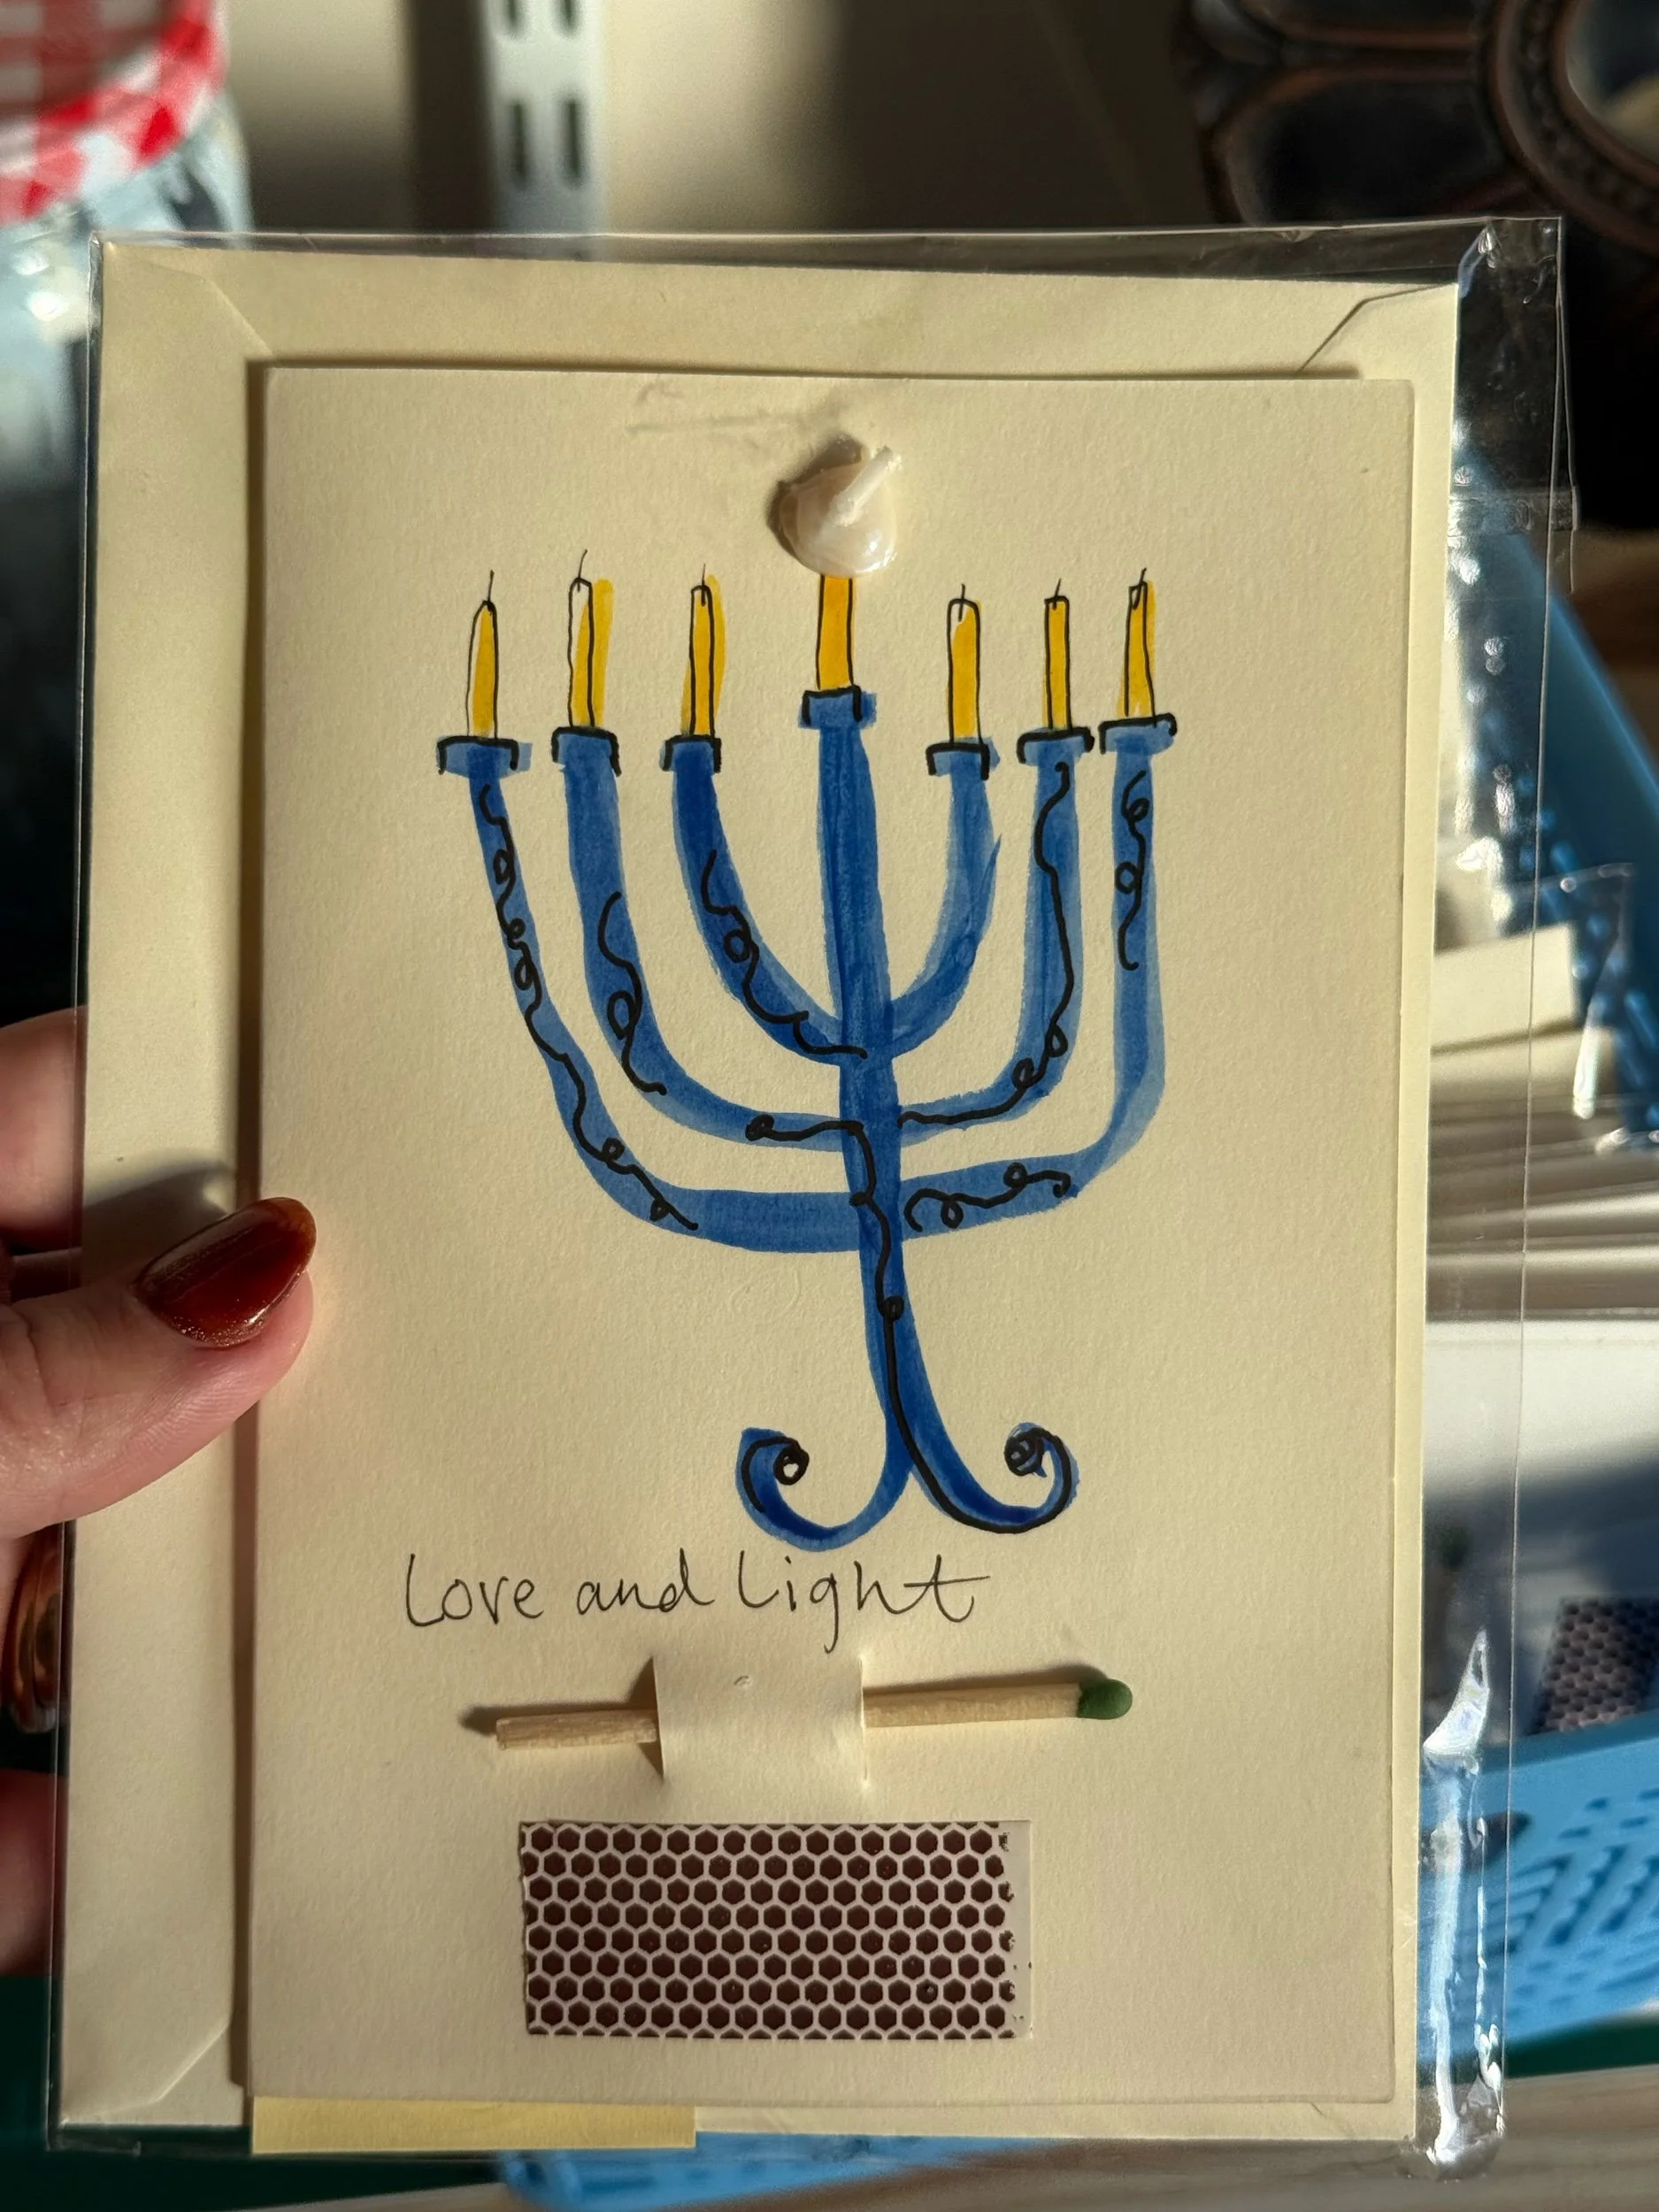 Love and Light